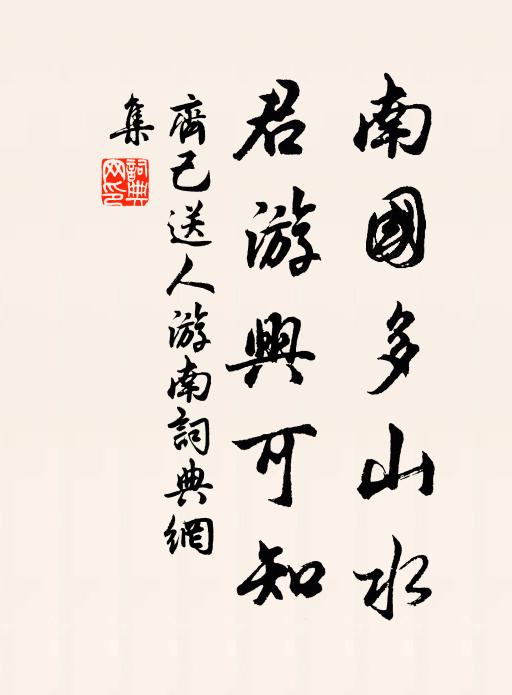 南國多山水
君游興可知
齊己送人游南詞典網
集
詞典網印